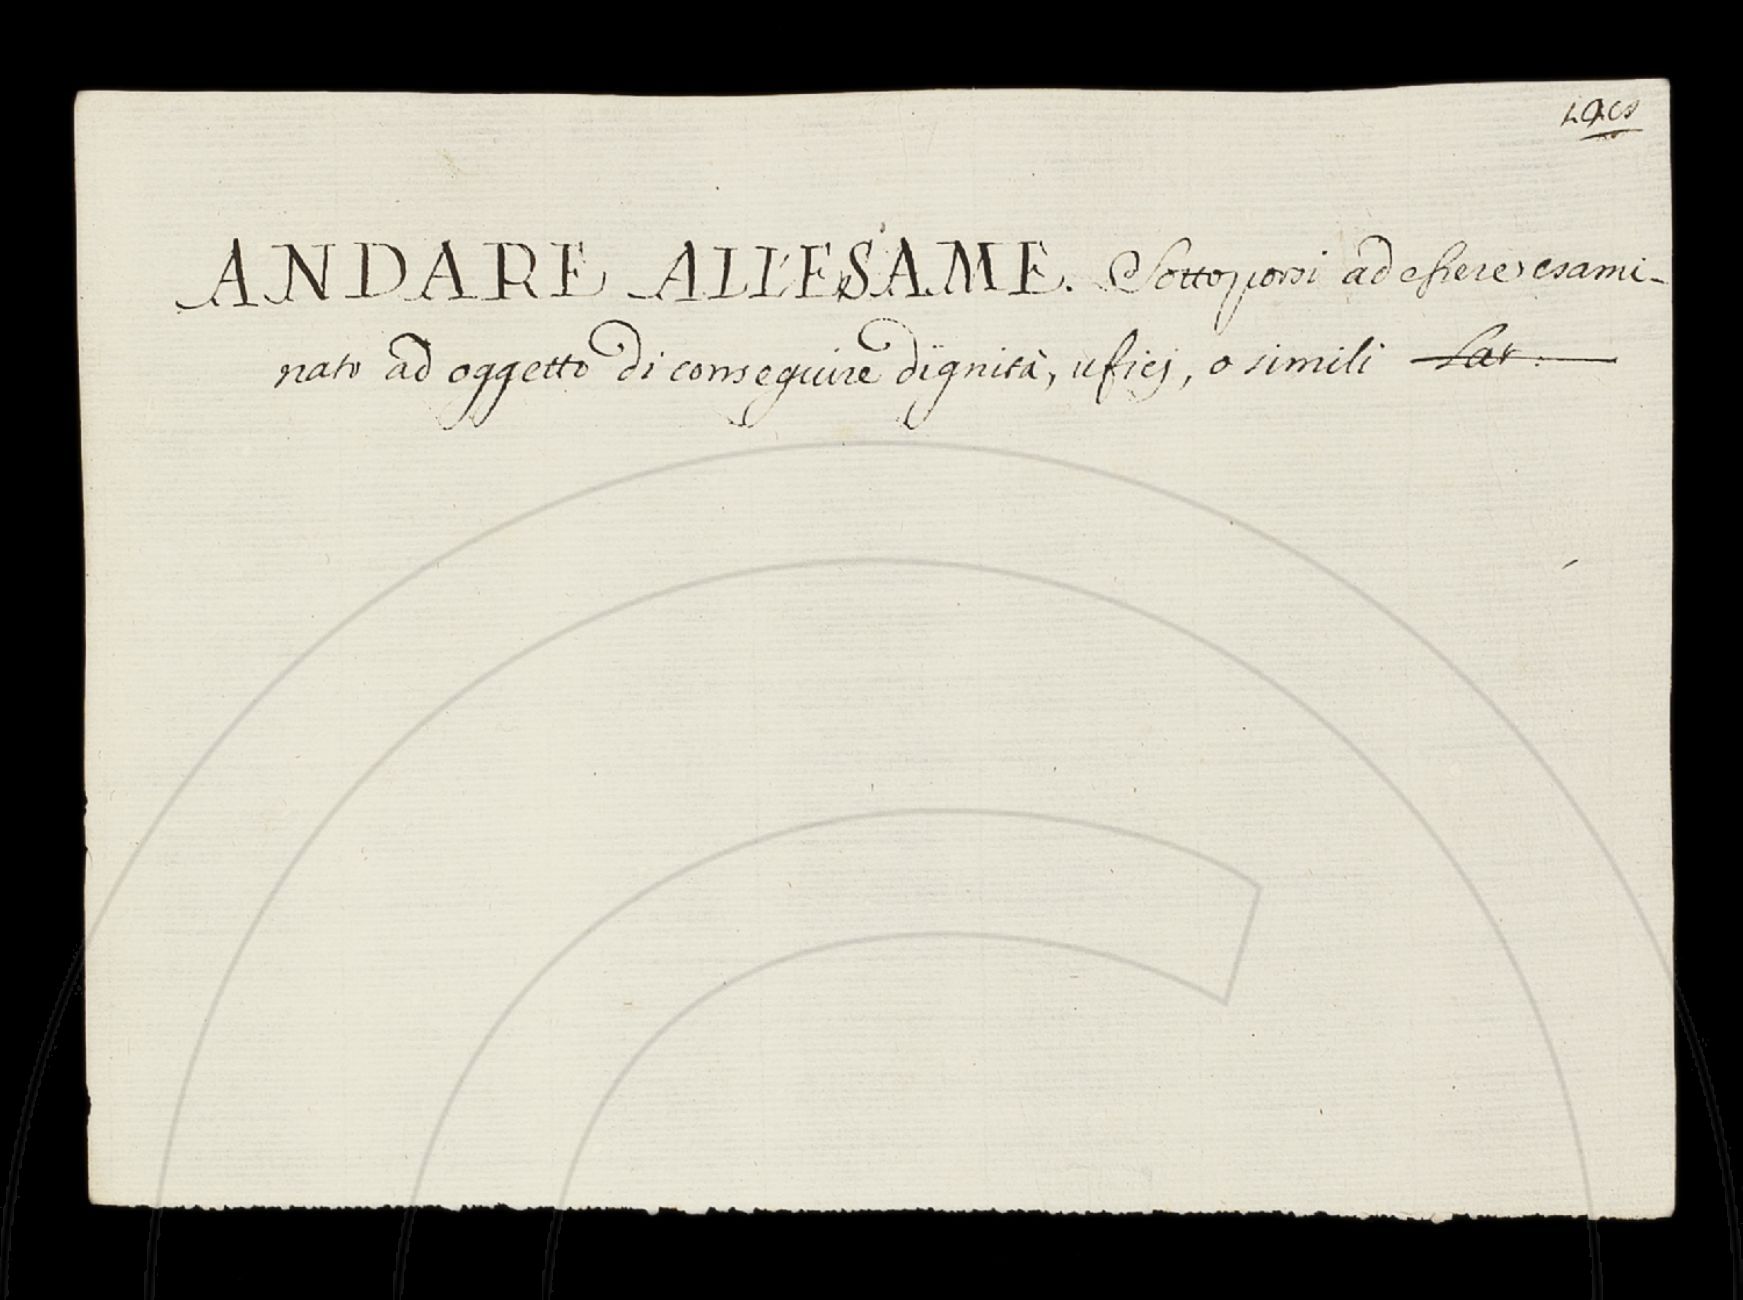 ANDARE ALL'ESAME. Sottoporsi ad essere esami-
nato ad oggetto di conseguire dignità, uficj, o simili Lat.